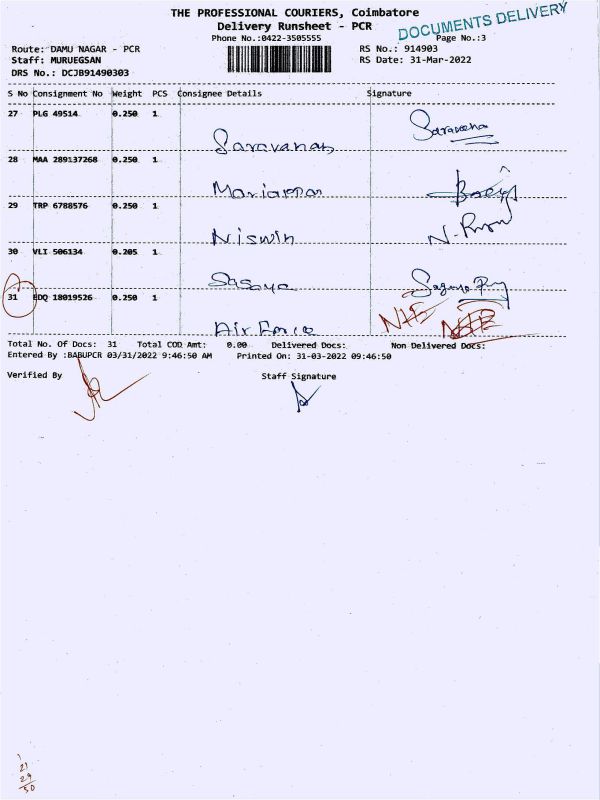 THE PROFESSIONAL COURIERS, Coimbatore
Delivery Runsheet - PCR
DOCUMENTS DELIVERY
Phone No.:0422-3505555
Page No.:3
Route: DAMU NAGAR - PCR
RS No.: 914903
Staff: MURUEGSAN
RS Date: 31-Mar-2022
DRS No.: DCJB91490303
S No Consignment No Weight PCS Consignee Details Signature
27 PLG 49514 0.250 1
Saravanan
28 MAA 289137268 0.250 1
Mariappan
29 TRP 6788576 0.250 1
Niswin
N.
30 VLI 506134 0.205 1
Sagaya
31 EDQ 18019526 0.250 1
Air Force
Total No. Of Docs: 31 Total COD Amt: 0.00 Delivered Docs: Non Delivered Docs:
Entered By :BABUPCR 03/31/2022 9:46:50 AM Printed On: 31-03-2022 09:46:50
Verified By Staff Signature
1
21
29
50